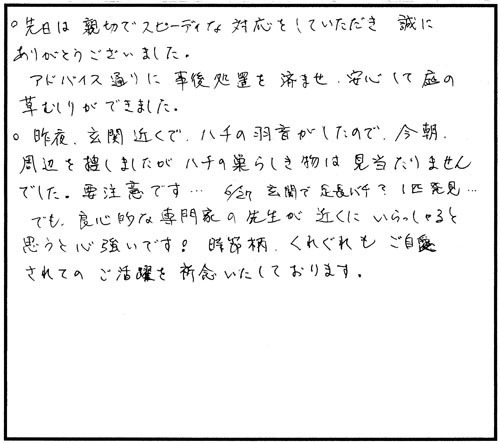 ○ 先日は 親切でスピーディな 対応をしていただき 誠に
ありがとうございました。
アドバイス通りに 事後処置を 済ませ、安心して 庭の
草むしりができました。
○ 昨夜、玄関近くで、ハチの羽音がしたので、今朝、
周辺を捜しましたが ハチの巣らしき物は 見当たりません
でした。要注意です… 5/27 玄関で 足長バチ? 1匹発見…
でも、良心的な専門家の先生が 近くに いらっしゃると
思うと心強いです! 時節柄、くれぐれも ご自愛
されての ご活躍を 祈念いたしております。